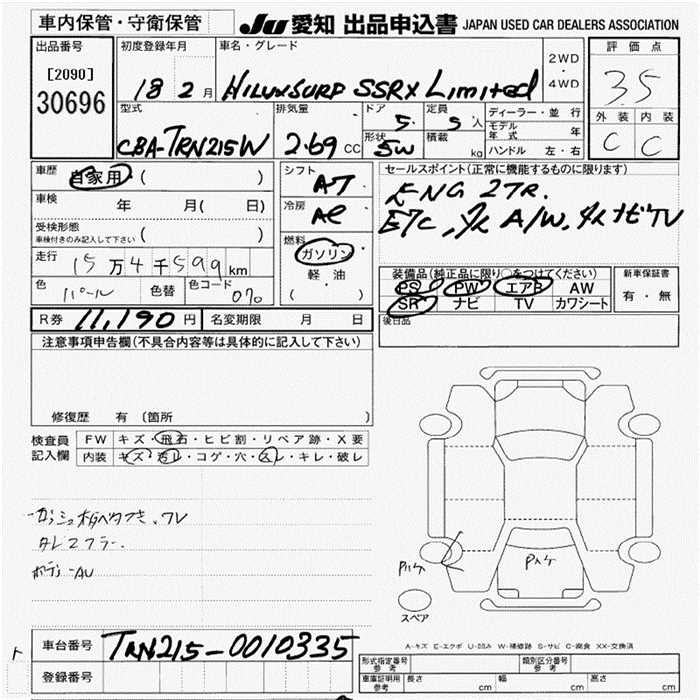 車内保管・守衛保管 JU 愛知 出品申込書 JAPAN USED CAR DEALERS ASSOCIATION
出品番号 初度登録年月 車名・グレード 評価点
[2090] 18 2月 HILUXSURF SSRX Limited 2WD・4WD 3.5
30696
型式 排気量 ドア 定員 ディーラー・並行 外装 内装
CBA-TRN215W 2.69 CC 5 5人 モデル年式 年 C C
形状 5W 積載 kg ハンドル 左・右
車歴 自家用 ( ) シフト AT セールスポイント(正常に機能するものに限ります)
車検 年 月( 日) 冷房 AC ENG 2TR.
受検形態 ( ) E7C, A/W, ナビTV
車検付きのみ記入して下さい
燃料 ガソリン 軽・油 ( )
走行 15万4千599km 装備品(純正品に限り○をつけてください) 新車保証書
色 パール 色替 色コード 070 PS PW エアB AW 有・無
SR ナビ TV カワシート
R券 11,190円 名変期限 月 日 後日品
注意事項申告欄(不具合内容等は具体的に記入して下さい)
修復歴 有 (箇所
検査員 FW キズ・飛石・ヒビ割・リペア跡・X要
記入欄 内装 キズ・汚レ・コゲ・穴・スレ・キレ・破レ
スペア
車台番号 TRN215-0010335
A-キズ E-エクボ U-凹み W-補修跡 S-サビ C-腐食 XX-交換済
登録番号 形式指定番号 参考 類別区分番号 参考
車庫証明用 参考 長さ cm 幅 cm 高さ cm